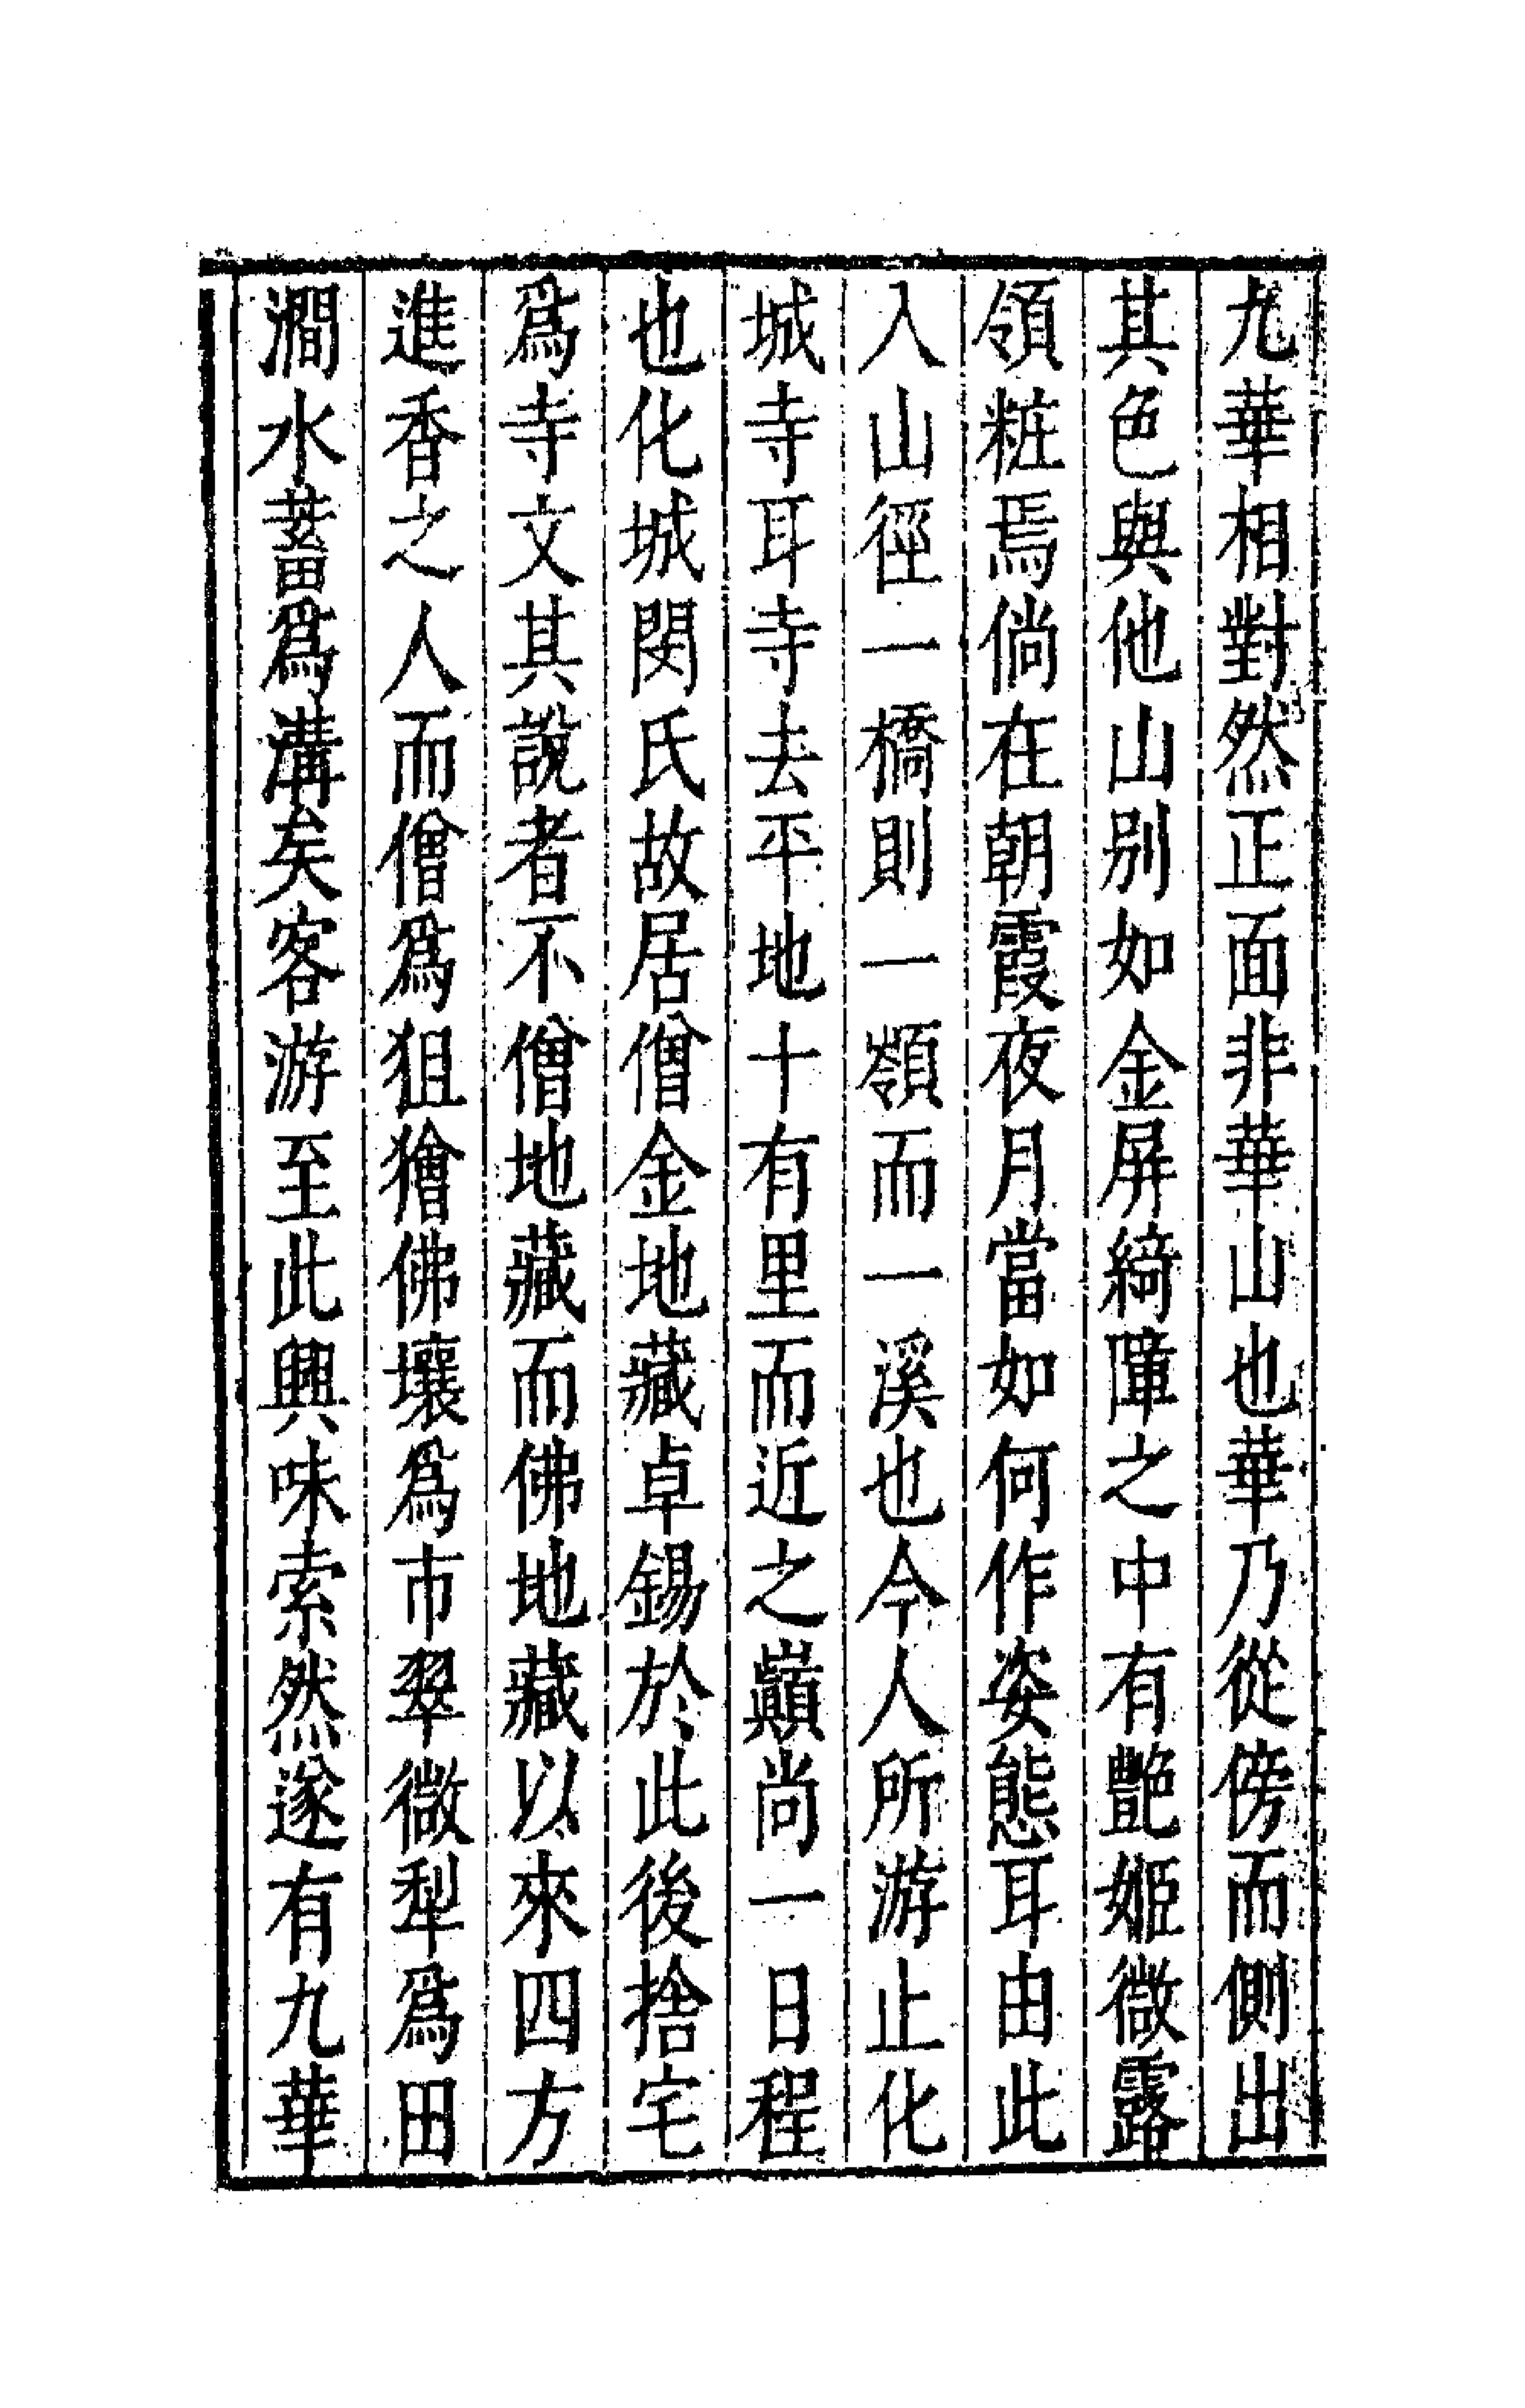 九華相對然正面非華山也華乃從傍而側出
其色與他山别如金屏綺障之中有艶姬微露
領粧焉倘在朝霞夜月當如何作姿態耳由此
入山徑一橋則一嶺而一溪也今人所游止化
城寺耳寺去平地十有里而近之巔尚一日程
也化城閔氏故居僧金地藏卓錫於此後捨宅
爲寺文其說者不僧地藏而佛地藏以來四方
進香之人而僧爲狙獪佛壤爲市翠微犁爲田
澗水蓄爲溝矣客游至此興味索然遂有九華